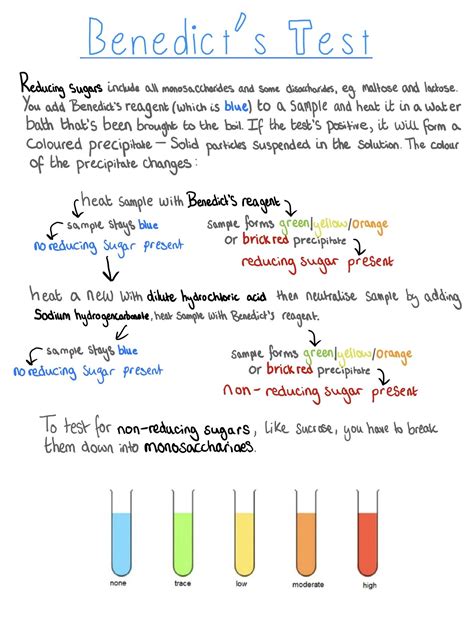 Benedict's Test
Reducing Sugars include all monosaccharides and some disaccharides, eg maltose and lactose.
You add Benedict's reagent (which is blue) to a sample and heat it in a water
bath that's been brought to the boil. If the test's positive, it will form a
coloured precipitate – Solid particles suspended in the solution. The colour
of the precipitate changes:
heat sample with Benedict's reagent
sample stays blue
no reducing sugar present
sample forms green/yellow/orange
or brick red precipitate
reducing sugar present
heat a new with dilute hydrochloric acid then neutralise sample by adding
Sodium hydrogencarbonate, heat sample with Benedict's reagent.
sample stays blue
no reducing sugar present
sample forms green/yellow/orange
or brick red precipitate
non-reducing sugar present
To test for non-reducing sugars, like sucrose, you have to break
them down into monosaccharides.
none
trace
low
moderate
high